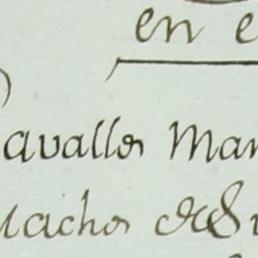 en e
avallos Man
Machos de Su